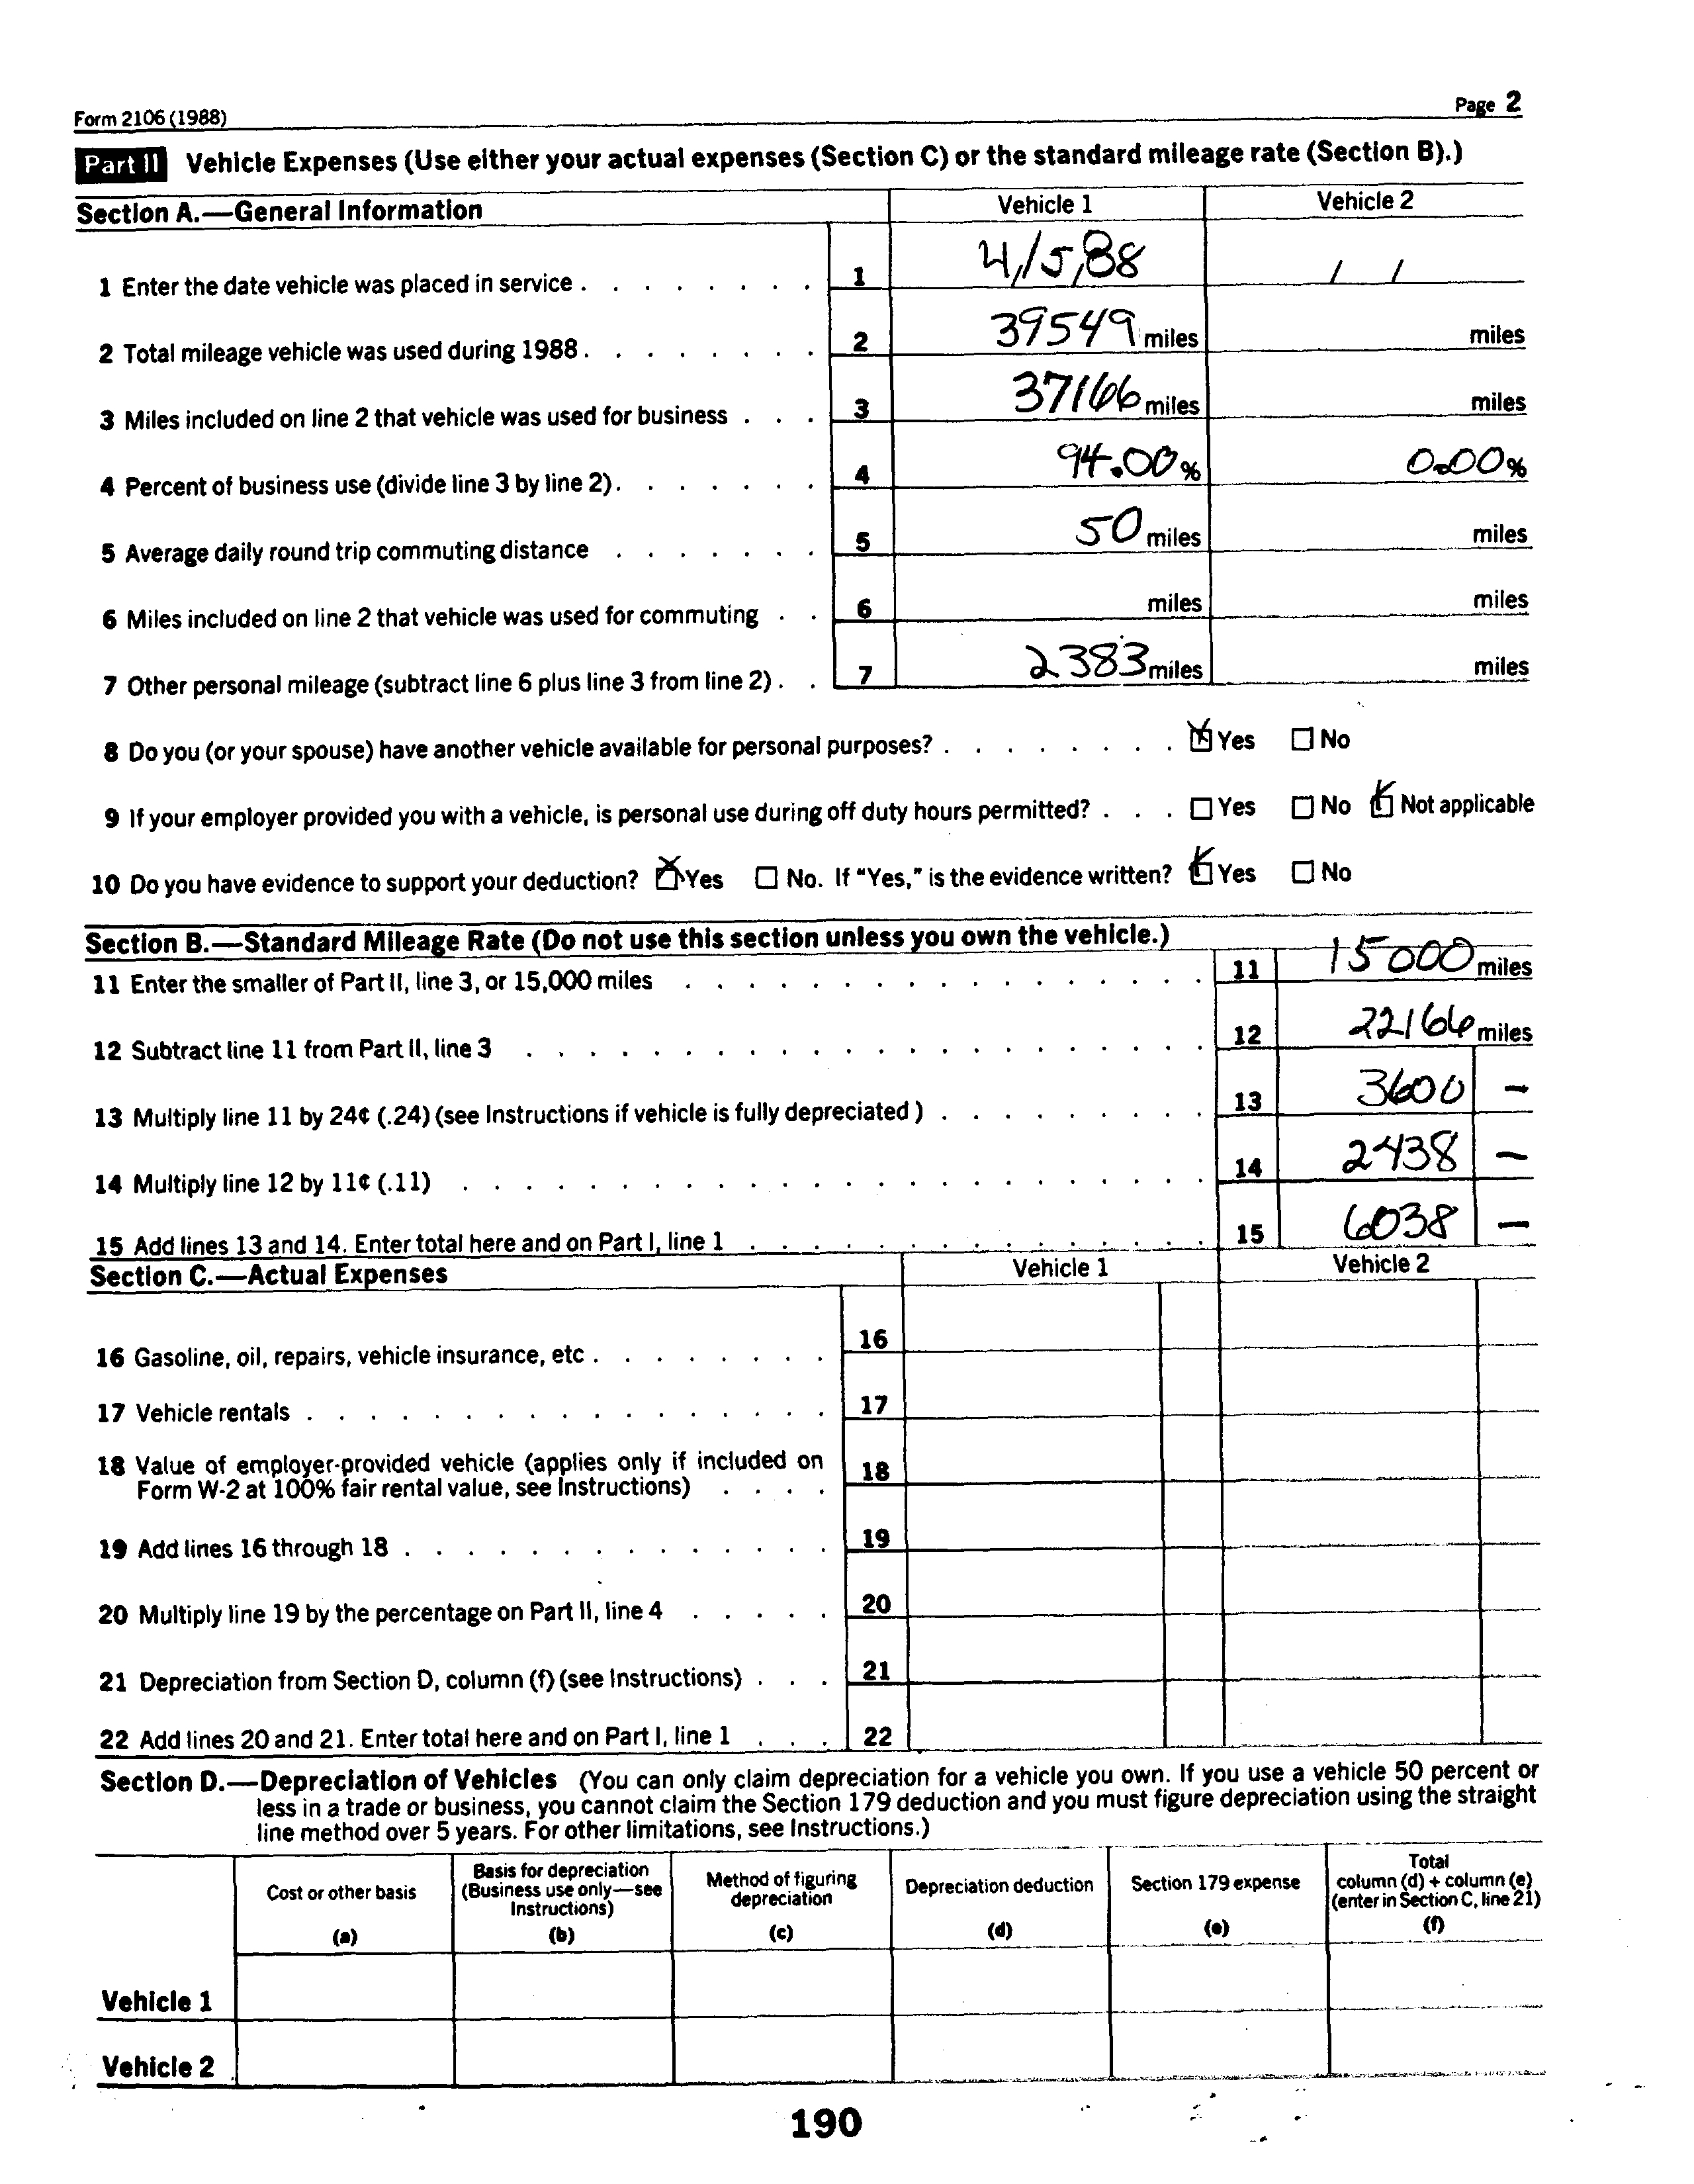 Form 2106 (1988)
Page 2
Part II Vehicle Expenses (Use either your actual expenses (Section C) or the standard mileage rate (Section B).)
Section A.—General Information
Vehicle 1
Vehicle 2
1 Enter the date vehicle was placed in service . . . . . . . . 1 4/15/88 / /
2 Total mileage vehicle was used during 1988 . . . . . . . . 2 39549 miles miles
3 Miles included on line 2 that vehicle was used for business . . . 3 37166 miles miles
4 Percent of business use (divide line 3 by line 2) . . . . . . . 4 94.00 % 0.00 %
5 Average daily round trip commuting distance . . . . . . . 5 50 miles miles
6 Miles included on line 2 that vehicle was used for commuting . . 6 miles miles
7 Other personal mileage (subtract line 6 plus line 3 from line 2) . . 7 2383 miles miles
8 Do you (or your spouse) have another vehicle available for personal purposes? . . . . . . . . ☒ Yes ☐ No
9 If your employer provided you with a vehicle, is personal use during off duty hours permitted? . . . ☐ Yes ☐ No ☒ Not applicable
10 Do you have evidence to support your deduction? ☒ Yes ☐ No. If "Yes," is the evidence written? ☒ Yes ☐ No
Section B.—Standard Mileage Rate (Do not use this section unless you own the vehicle.)
11 Enter the smaller of Part II, line 3, or 15,000 miles . . . . . . . . . . . . . . . . 11 15000 miles
12 Subtract line 11 from Part II, line 3 . . . . . . . . . . . . . . . . . . . . . 12 22166 miles
13 Multiply line 11 by 24¢ (.24) (see Instructions if vehicle is fully depreciated) . . . . . . . . . 13 3600 –
14 Multiply line 12 by 11¢ (.11) . . . . . . . . . . . . . . . . . . . . . . . 14 2438 –
15 Add lines 13 and 14. Enter total here and on Part I, line 1 . . . . . . . . . . . . . . . 15 6038 –
Section C.—Actual Expenses
Vehicle 1
Vehicle 2
16 Gasoline, oil, repairs, vehicle insurance, etc . . . . . . . . 16
17 Vehicle rentals . . . . . . . . . . . . . . . . . 17
18 Value of employer-provided vehicle (applies only if included on
Form W-2 at 100% fair rental value, see Instructions) . . . . 18
19 Add lines 16 through 18 . . . . . . . . . . . . . . 19
20 Multiply line 19 by the percentage on Part II, line 4 . . . . . 20
21 Depreciation from Section D, column (f) (see Instructions) . . . 21
22 Add lines 20 and 21. Enter total here and on Part I, line 1 . . . 22
Section D.—Depreciation of Vehicles (You can only claim depreciation for a vehicle you own. If you use a vehicle 50 percent or
less in a trade or business, you cannot claim the Section 179 deduction and you must figure depreciation using the straight
line method over 5 years. For other limitations, see Instructions.)
Cost or other basis
(a)
Basis for depreciation
(Business use only—see
Instructions)
(b)
Method of figuring
depreciation
(c)
Depreciation deduction
(d)
Section 179 expense
(e)
Total
column (d) + column (e)
(enter in Section C, line 21)
(f)
Vehicle 1
Vehicle 2
190